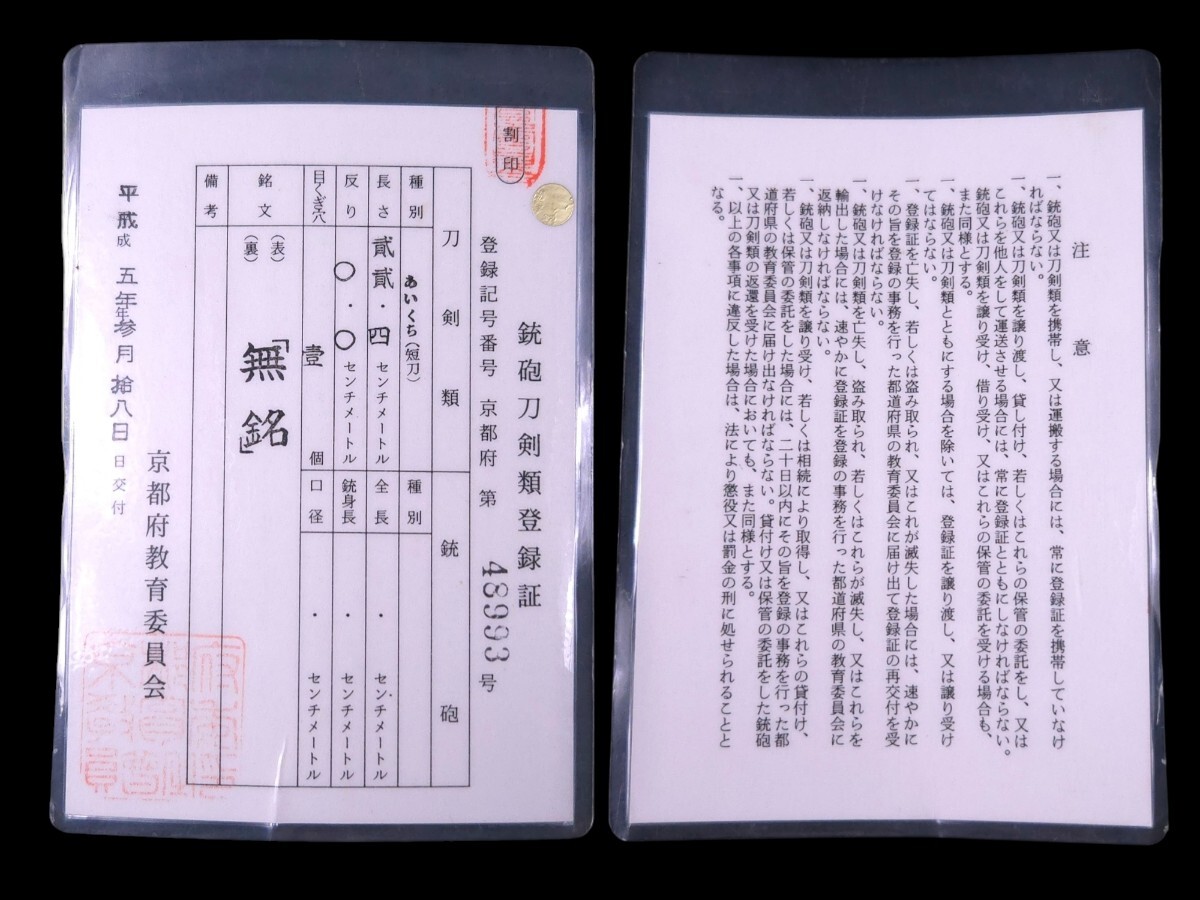 割印
銃砲刀剣類登録証
登録記号番号 京都府 第 48993 号
刀剣類 銃砲
種別 あいくち(短刀) 種別
長さ 貳貳・四 センチメートル 全長 ・ センチメートル
反り 〇・〇 センチメートル 銃身長 ・ センチメートル
目くぎ穴 壹 個 口径 ・ センチメートル
銘文 (表) 「無銘」
(裏)
備考
平成 五年 参月 拾八日 日交付
京都府教育委員会
注意
一、銃砲又は刀剣類を携帯し、又は運搬する場合には、常に登録証を携帯していなけ
ればならない。
一、銃砲又は刀剣類を譲り渡し、貸し付け、若しくはこれらの保管の委託をし、又は
これらを他人をして運送させる場合には、常に登録証とともにしなければならない。
銃砲又は刀剣類を譲り受け、借り受け、又はこれらの保管の委託を受ける場合も、
また同様とする。
一、銃砲又は刀剣類とともにする場合を除いては、登録証を譲り渡し、又は譲り受け
てはならない。
一、登録証を亡失し、若しくは盗み取られ、又はこれが滅失した場合には、速やかに
その旨を登録の事務を行った都道府県の教育委員会に届け出て登録証の再交付を受
けなければならない。
一、銃砲又は刀剣類を亡失し、盗み取られ、若しくはこれらが滅失し、又はこれらを
輸出した場合には、速やかに登録証を登録の事務を行った都道府県の教育委員会に
返納しなければならない。
一、銃砲又は刀剣類を譲り受け、若しくは相続により取得し、又はこれらの貸付け、
若しくは保管の委託をした場合には、二十日以内にその旨を登録の事務を行った都
道府県の教育委員会に届け出なければならない。貸付け又は保管の委託をした銃砲
又は刀剣類の返還を受けた場合においても、また同様とする。
一、以上の各事項に違反した場合は、法により懲役又は罰金の刑に処せられることと
なる。